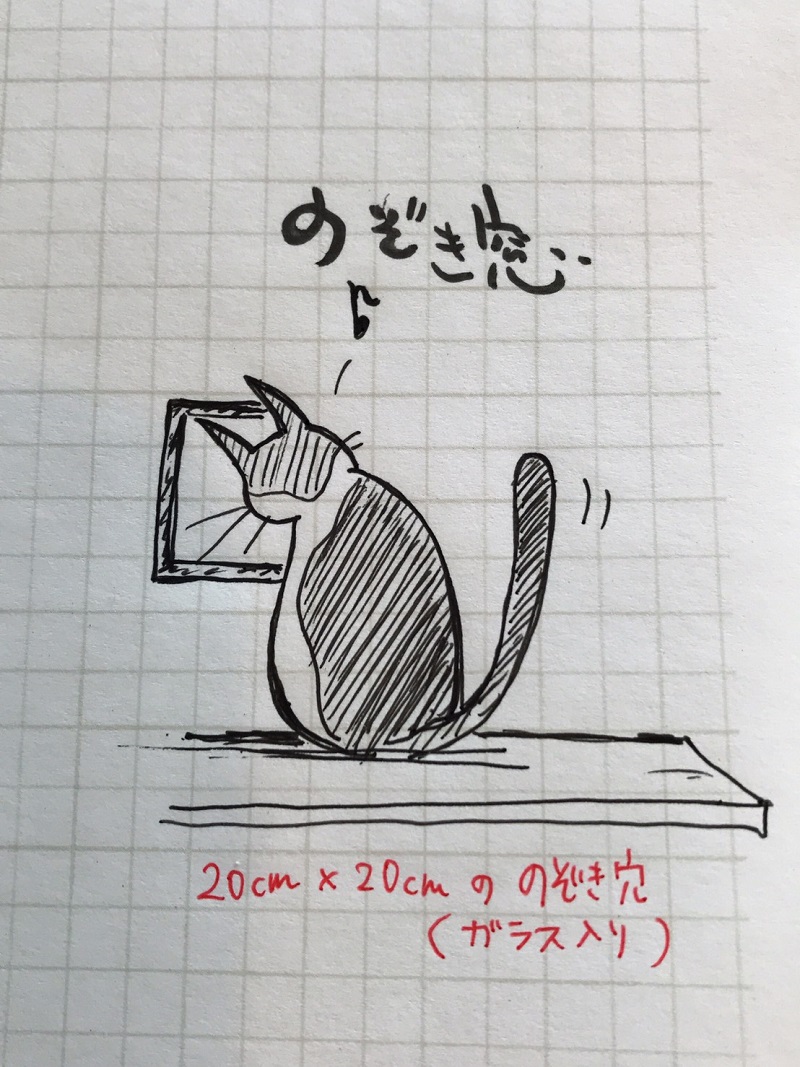 のぞき窓‥
20cm × 20cm の のぞき穴
(ガラス入り)